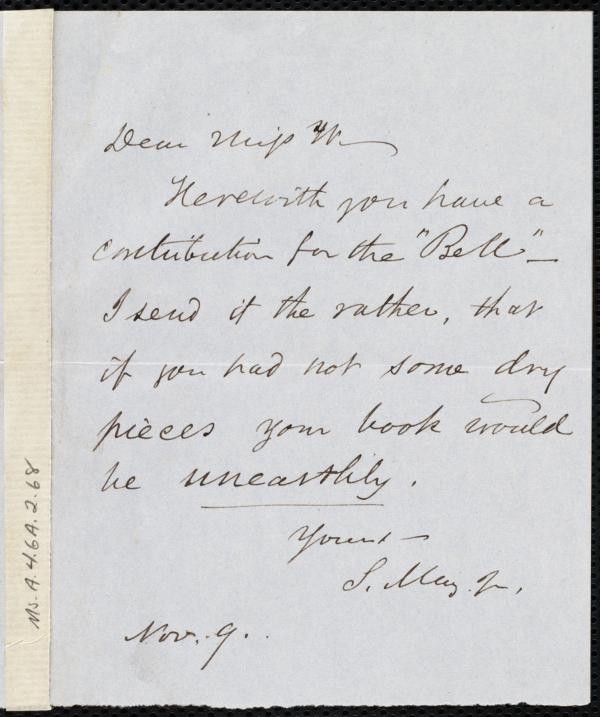 Dear Miss W
Herewith you have a
contribution for the "Bell" —
I send it the rather, that
if you had not some dry
pieces your book would
be unearthly.
Yours —
S. May Jr.
Nov. 9.
Ms. A. 4.6A.2.68